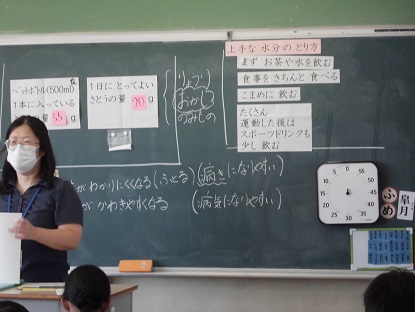 ペットボトル(500ml)
1本に入っている
さとうの量 55 g
1日に とってよい
さとうの量 20 g
りょうり
おかし
のみもの
上手な 水分の とり方
まず お茶や水を飲む
食事を きちんと 食べる
こまめに 飲む
たくさん
運動した後は
スポーツドリンクも
少し 飲む
がわかりにくくなる (ふとる) (病きになりやすい)
が かわきやすくなる (病気になりやすい)
ふ
め
皐
月